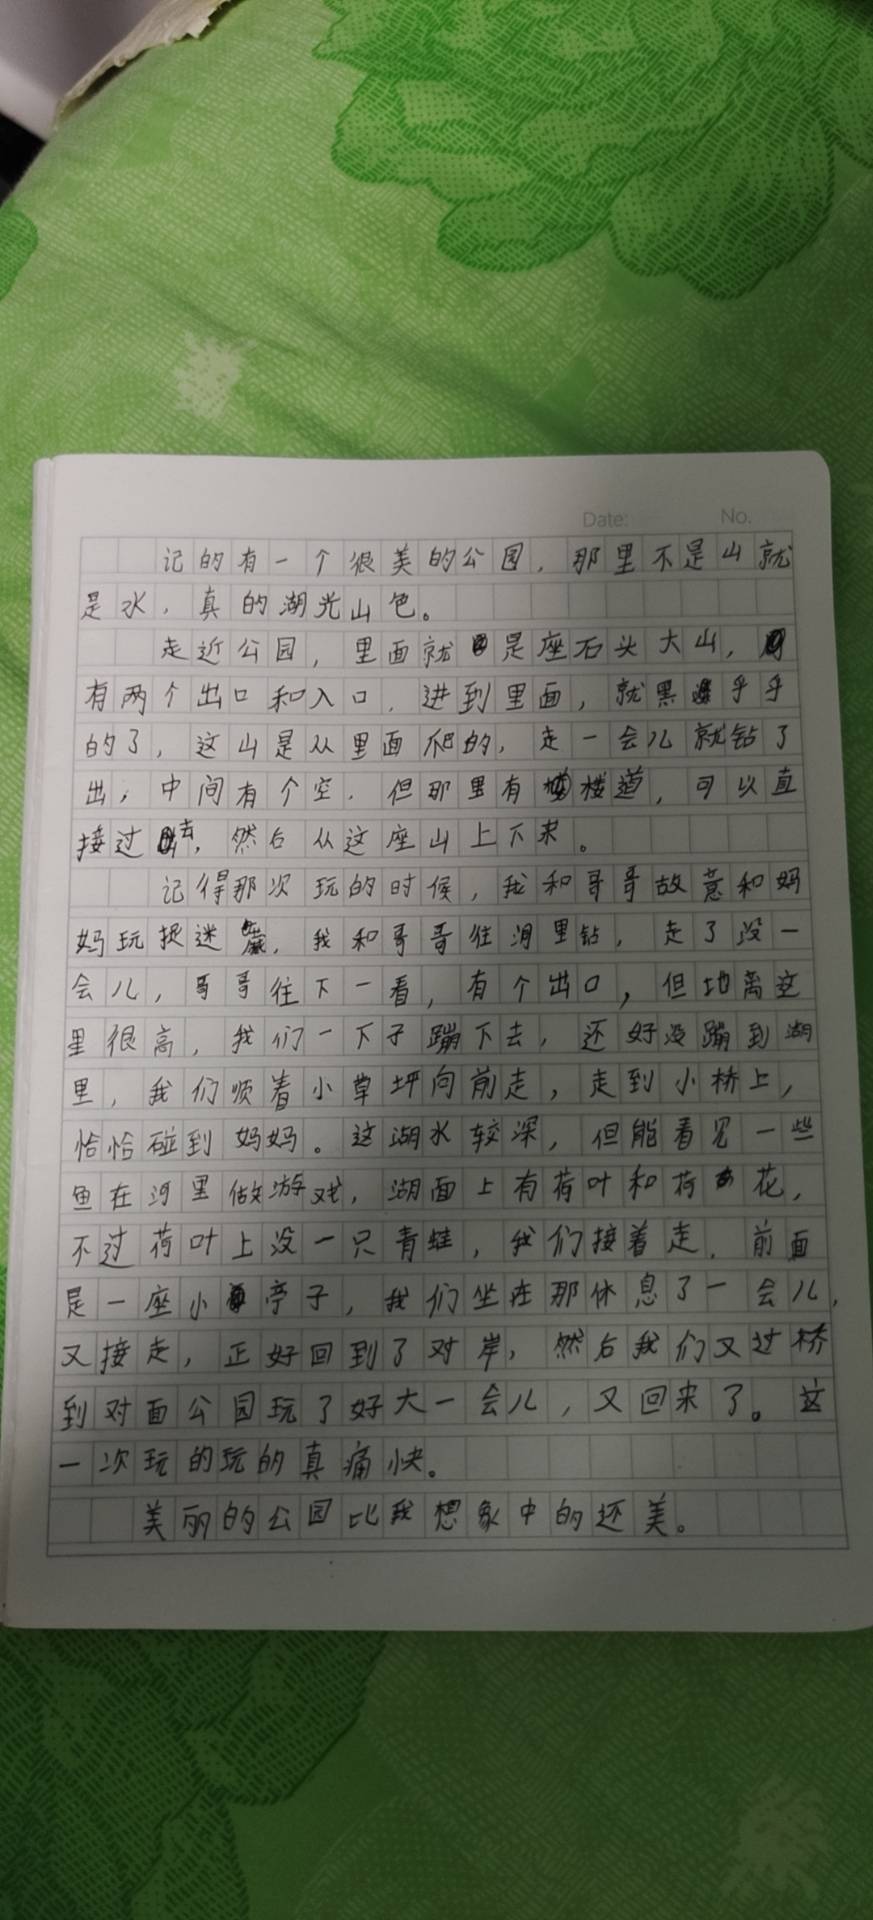 Date: No.
记的有一个很美的公园，那里不是山就
是水，真的湖光山色。
走近公园，里面就是座石头大山，
有两个出口和入口，进到里面，就黑乎乎
的了，这山是从里面爬的，走一会儿就钻了
出，中间有个空．但那里有楼道，可以直
接过去，然后从这座山上下来。
记得那次玩的时候，我和哥哥故意和妈
妈玩捉迷藏，我和哥哥往洞里钻，走了没一
会儿，哥哥往下一看，有个出口，但地离这
里很高，我们一下子蹦下去，还好没蹦到湖
里，我们顺着小草坪向前走，走到小桥上，
恰恰碰到妈妈。这湖水较深，但能看见一些
鱼在河里做游戏，湖面上有荷叶和荷花，
不过荷叶上没一只青蛙，我们接着走．前面
是一座小亭子，我们坐在那休息了一会儿，
又接走，正好回到了对岸，然后我们又过桥
到对面公园玩了好大一会儿，又回来了。这
一次玩的玩的真痛快。
美丽的公园比我想象中的还美。